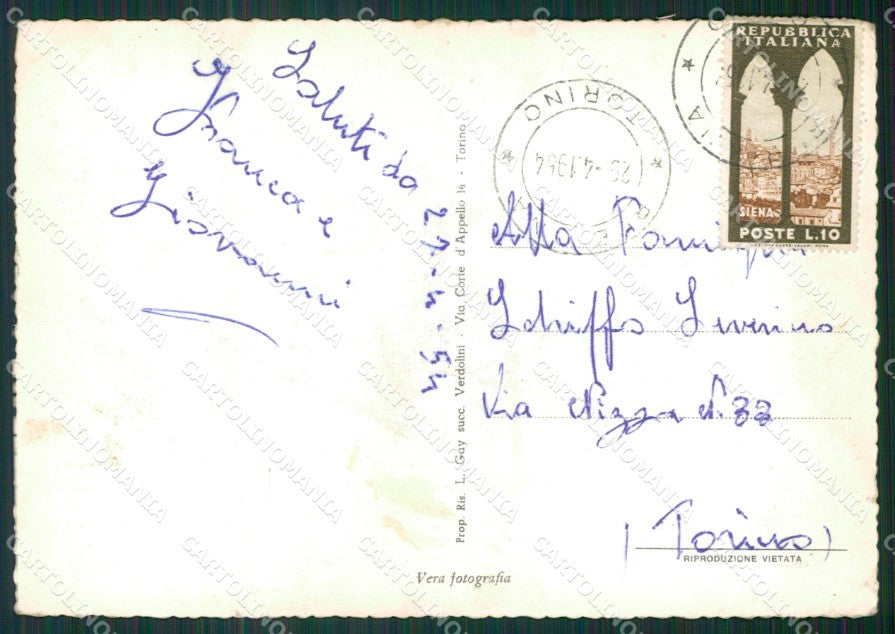 Saluti da
Franca e
Giovanni
27-4-54
Prop. Ris. L. Gay succ. Verdolini - Via Corte d'Appello 14 - Torino
Vera fotografia
REPUBBLICA
ITALIANA
SIENA
POSTE L.10
TORINO
-4.1954
Alla Famiglia
Schiffo Severino
Via Nizza N. 33
(Torino)
RIPRODUZIONE VIETATA
CARTOLINOMANIA